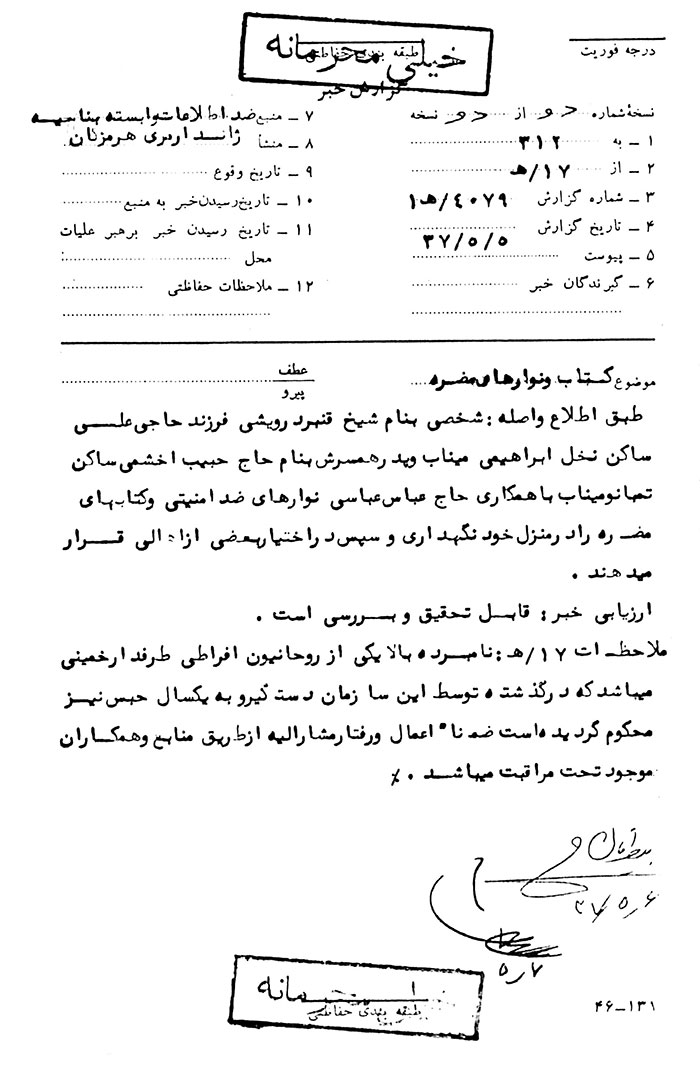 خیلی محرمانه
طبقه بندی حفاظتی
درجه فوریت
گزارش خبر
نسخهٔ شماره دو از دو نسخه
۱ ــ به ۳۱۲
۲ ــ از ۱۷/هـ
۳ ــ شماره گزارش ۴۰۷۹/هـ۱
۴ ــ تاریخ گزارش ۳۷/۵/۵
۵ ــ پیوست
۶ ــ گیرندگان خبر
۷ ــ منبع ضد اطلاعات وابسته بناحیه
ژاندارمری هرمزگان
۸ ــ منشأ
۹ ــ تاریخ وقوع
۱۰ ــ تاریخ رسیدن خبر به منبع
۱۱ ــ تاریخ رسیدن خبر برهبر علیات
محل
۱۲ ــ ملاحظات حفاظتی
موضوع کتاب ونوارهای مضره
عطف
پیرو
طبق اطلاع واصله : شخصی بنام شیخ قنبر درویشی فرزند حاجی علی
ساکن نخل ابراهیمی میناب وپدر همسرش بنام حاج حبیب اخشمی ساکن
تمبانو میناب با همکاری حاج عباس عباسی نوارهای ضد امنیتی وکتابهای
مضره را در منزل خود نگهداری و سپس در اختیار بعضی از اهالی قرار
میدهند .
ارزیابی خبر : قابل تحقیق و بررسی است .
ملاحظات ۱۷/هـ : نامبرده بالا یکی از روحانیون افراطی طرفدار خمینی
میباشد که در گذشته توسط این سازمان دستگیر و به یکسال حبس نیز
محکوم گردیده است ضمنا" اعمال ورفتار مشارالیه از طریق منابع وهمکاران
موجود تحت مراقبت میباشد . ٪
۳۷/۵/۶
۵/۷
محرمانه
طبقه بندی حفاظتی
۴۶ــ۱۳۱